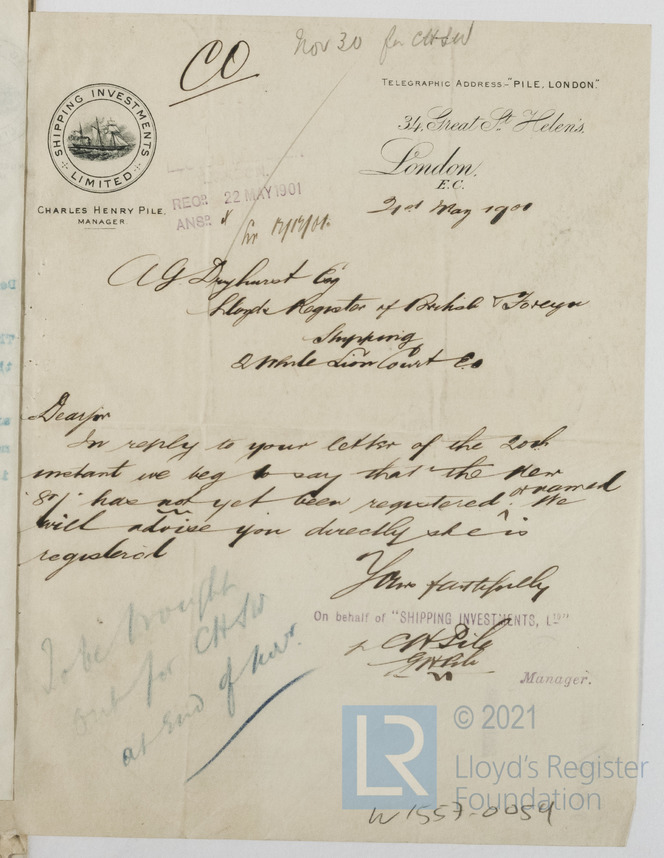 CO
Nov 30 for CHSW
TELEGRAPHIC ADDRESS-"PILE, LONDON."
SHIPPING INVESTMENTS
LIMITED
34, Great St. Helen's,
London,
E.C.
CHARLES HENRY PILE,
MANAGER.
RECD. 22 MAY 1901
ANSD.
21st May 1901
A G Dryhurst Esq
Lloyds Register of British & Foreign
Shipping
2 White Lion Court EC
Dear Sir
In reply to your letter of the 20th
instant we beg to say that the New
or named
has not yet been registered. We
will advise you directly she is
registered
Yours faithfully
On behalf of "SHIPPING INVESTMENTS, LTD"
CH Pile
Manager.
To be brought
out for CHSW
at End of Nov.
LR
© 2021
Lloyd's Register
Foundation
W1557-0054